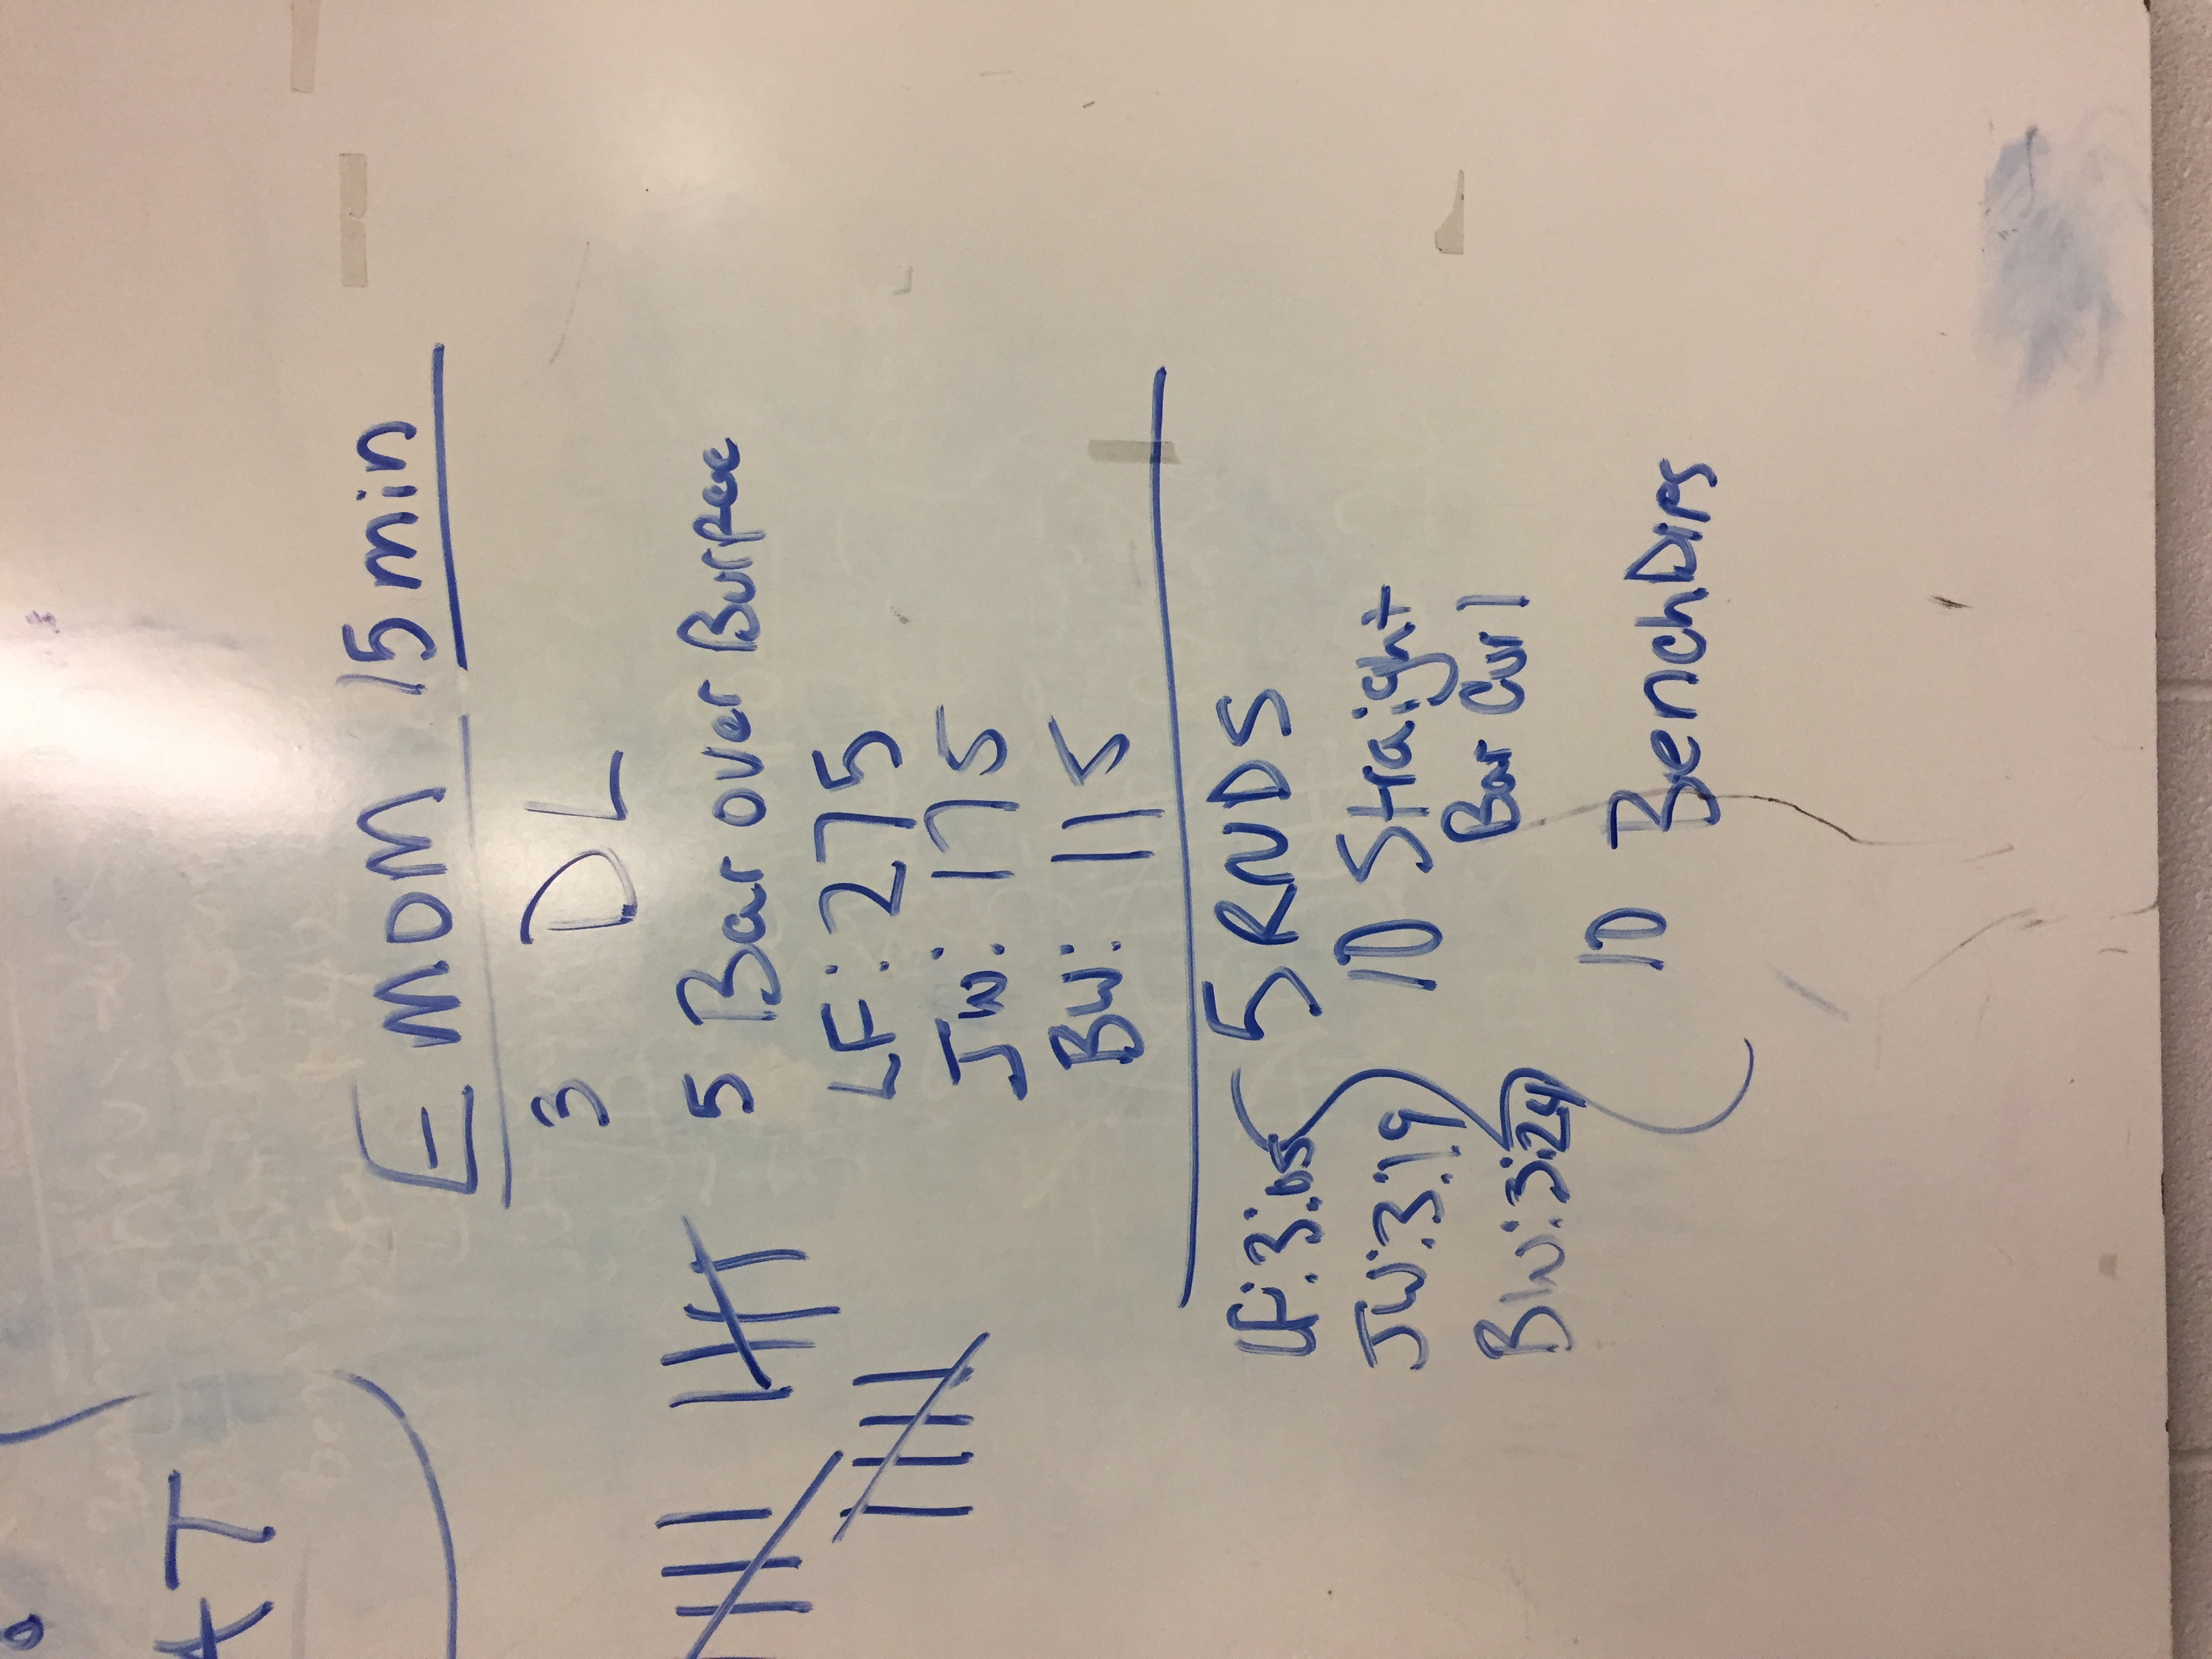 EMOM 15 min
3 DL
5 Bar over Burpee
LF: 275
JW: 175
BW: 115
5 RNDS
LF: 3:05
10 Straight
Bar Curl
JW: 3:19
10 Bench Dips
BW: 3:24